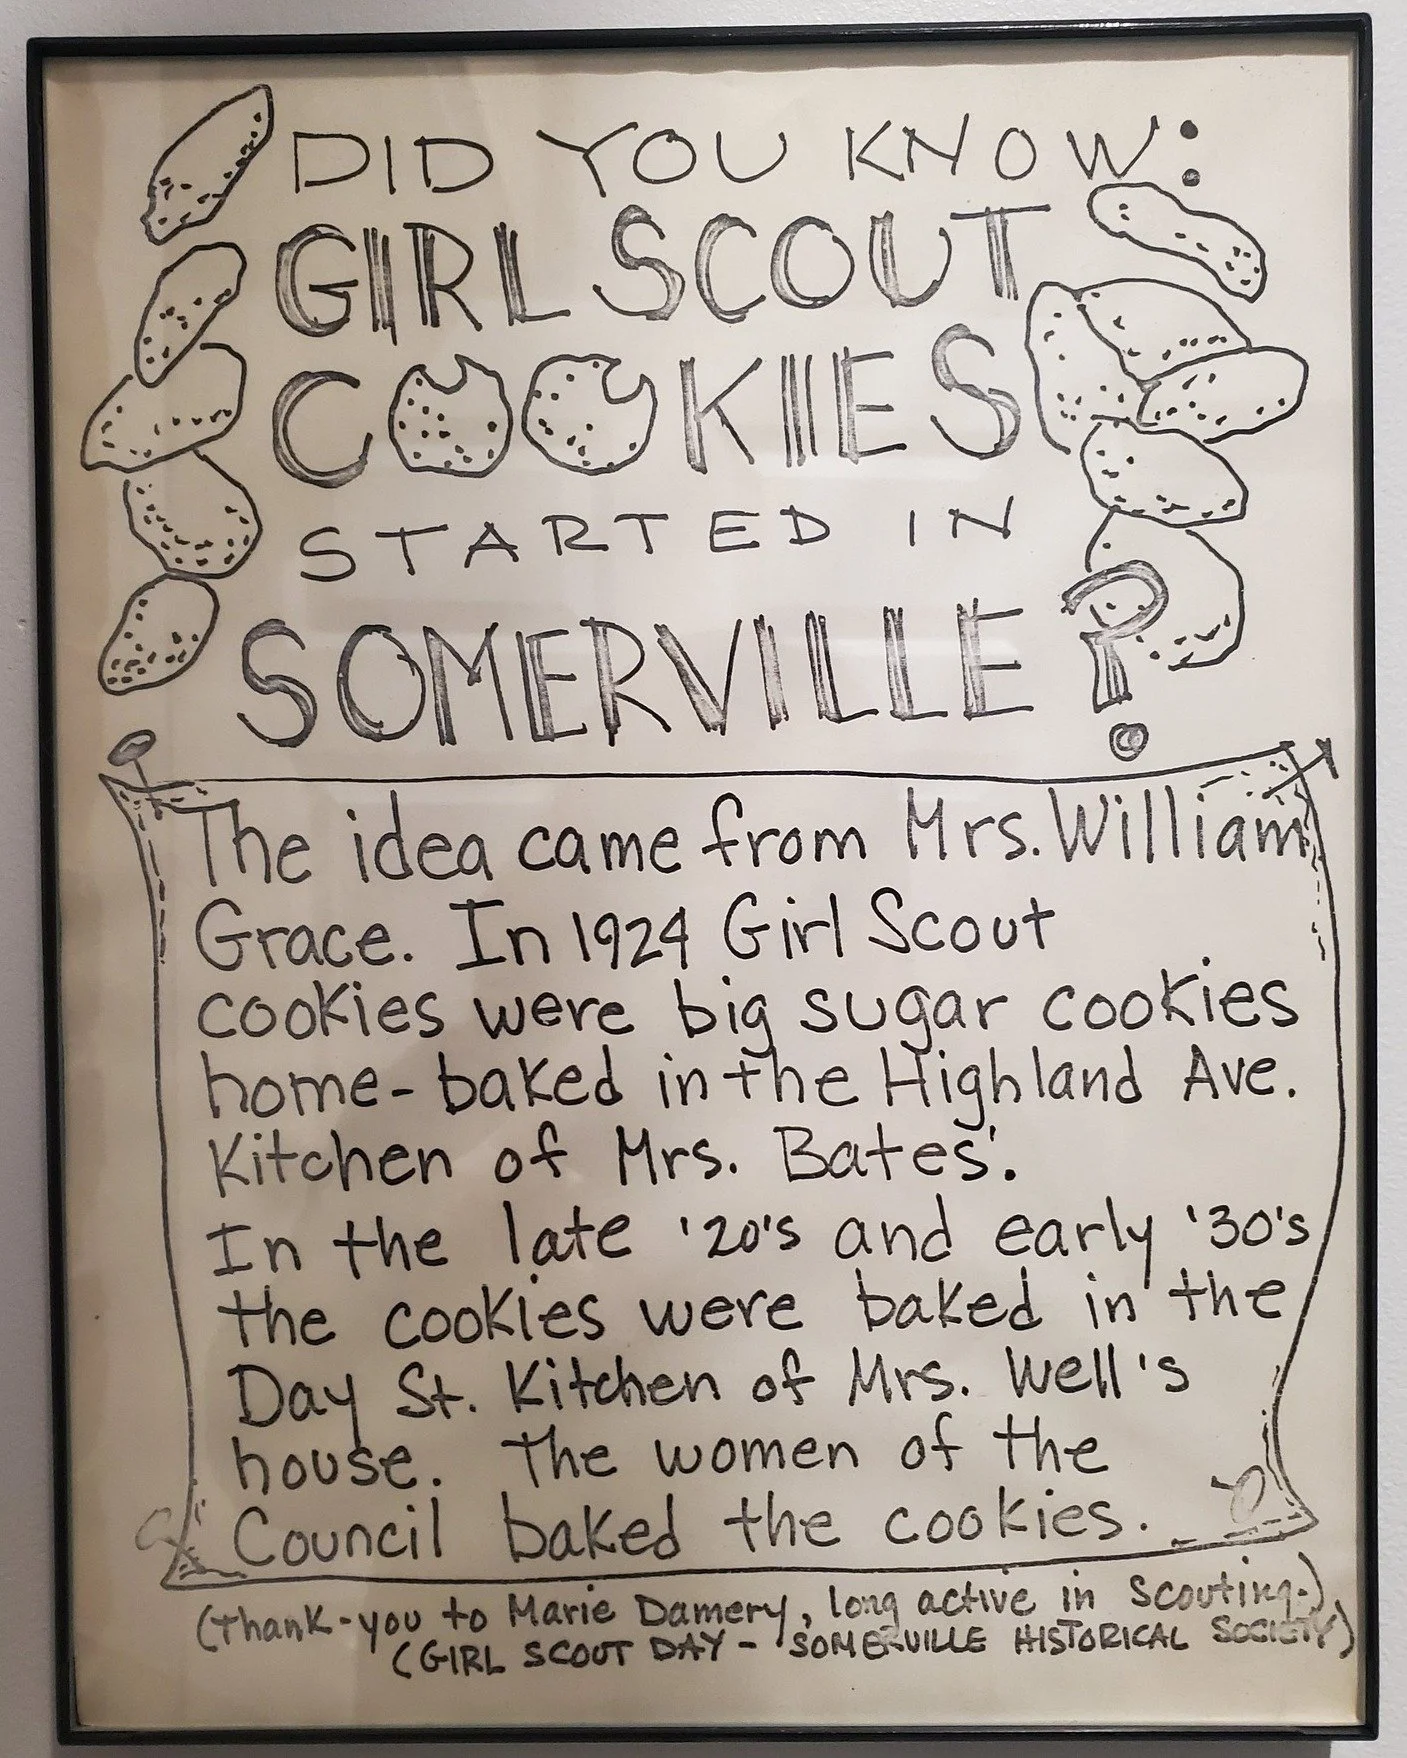 DID YOU KNOW:
GIRL SCOUT
COOKIES
STARTED IN
SOMERVILLE?
The idea came from Mrs. William
Grace. In 1924 Girl Scout
cookies were big sugar cookies
home-baked in the Highland Ave.
Kitchen of Mrs. Bates'.
In the late '20's and early '30's
the cookies were baked in the
Day St. Kitchen of Mrs. Well's
house. The women of the
Council baked the cookies.
(Thank-you to Marie Damery, long active in Scouting.)
(GIRL SCOUT DAY - SOMERVILLE HISTORICAL SOCIETY)